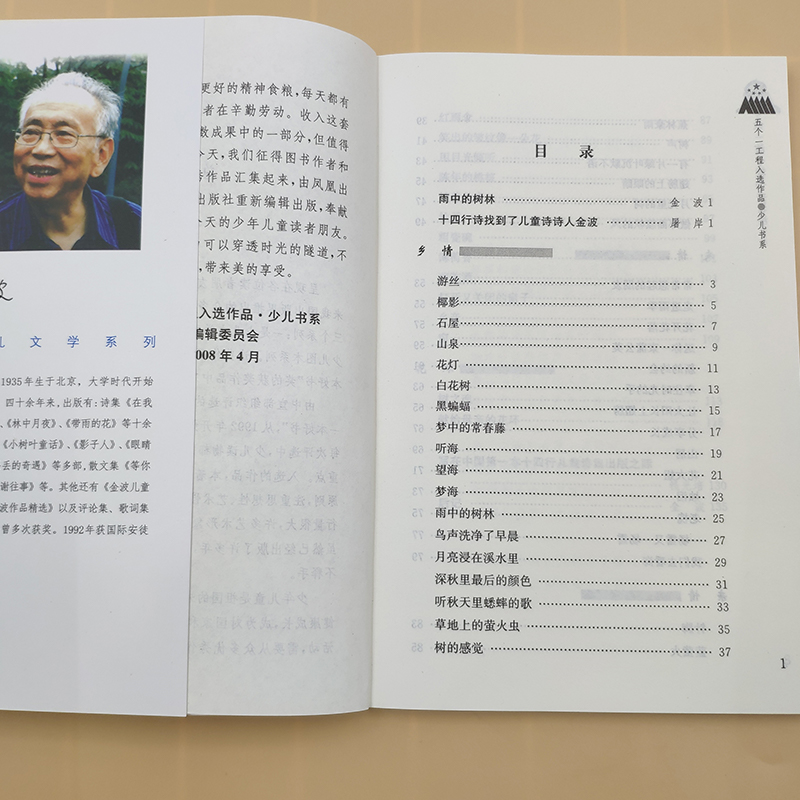 儿 文 学 系 列
1935年生于北京，大学时代开始
四十余年来，出版有：诗集《在我
、《林中月夜》、《带雨的花》等十余
《小树叶童话》、《影子人》、《眼睛
丢的奇遇》等多部，散文集《等你
谢往事》等。其他还有《金波儿童
波作品精选》以及评论集、歌词集
曾多次获奖。1992年获国际安徒
更好的精神食粮，每天都有
者在辛勤劳动。收入这套
成果中的一部分，但值得
今天，我们征得图书作者和
作品汇集起来，由凤凰出
出版社重新编辑出版，奉献
今天的少年儿童读者朋友。
可以穿透时光的隧道，不
，带来美的享受。
入选作品·少儿书系
编辑委员会
2008年4月
目 录
雨中的树林 金 波 1
十四行诗找到了儿童诗诗人金波 屠 岸 1
乡 情
游丝 3
椰影 5
石屋 7
山泉 9
花灯 11
白花树 13
黑蝙蝠 15
梦中的常春藤 17
听海 19
望海 21
梦海 23
雨中的树林 25
鸟声洗净了早晨 27
月亮浸在溪水里 29
深秋里最后的颜色 31
听秋天里蟋蟀的歌 33
草地上的萤火虫 35
树的感觉 37
五个一工程入选作品 少儿书系
1